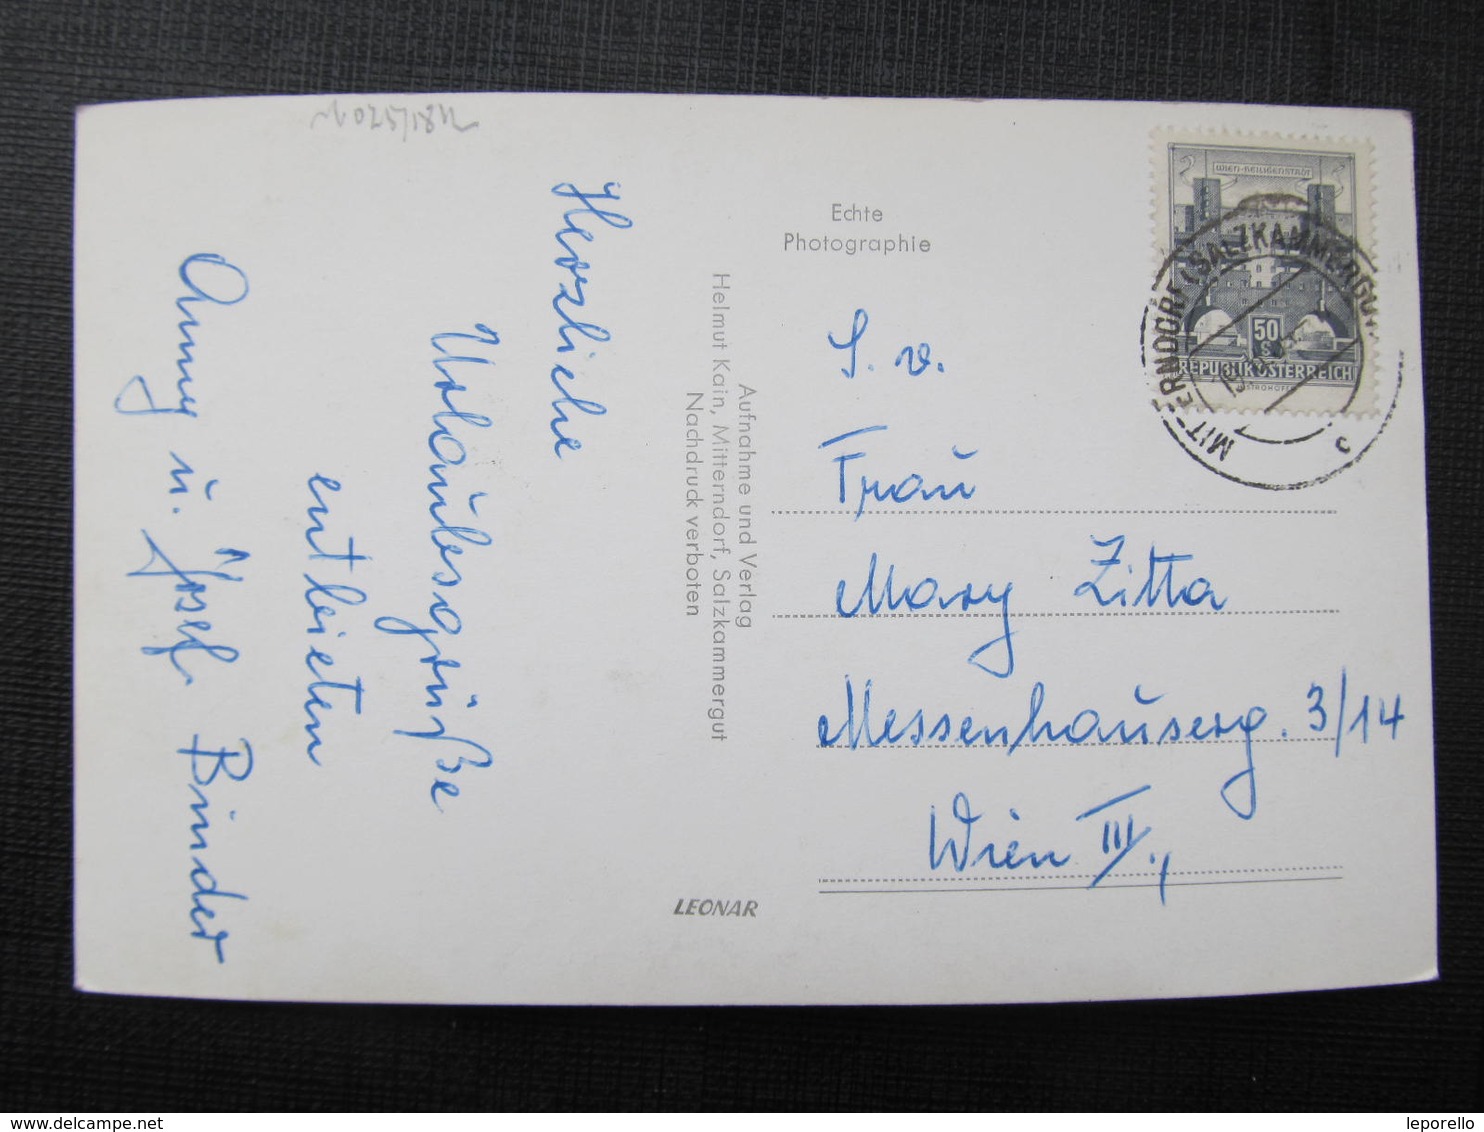 Herzliche
Urlaubsgrüße
entbieten
Anny u. Josef Binder
Echte
Photographie
Aufnahme und Verlag
Helmut Kain, Mitterndorf, Salzkammergut
Nachdruck verboten
LEONAR
WIEN-HEILIGENSTADT
50
REPUBLIK ÖSTERREICH
MITTERNDORF (SALZKAMMERGUT
Frau
Mary Zitta
Messenhauserg. 3/14
Wien III.,
leporello